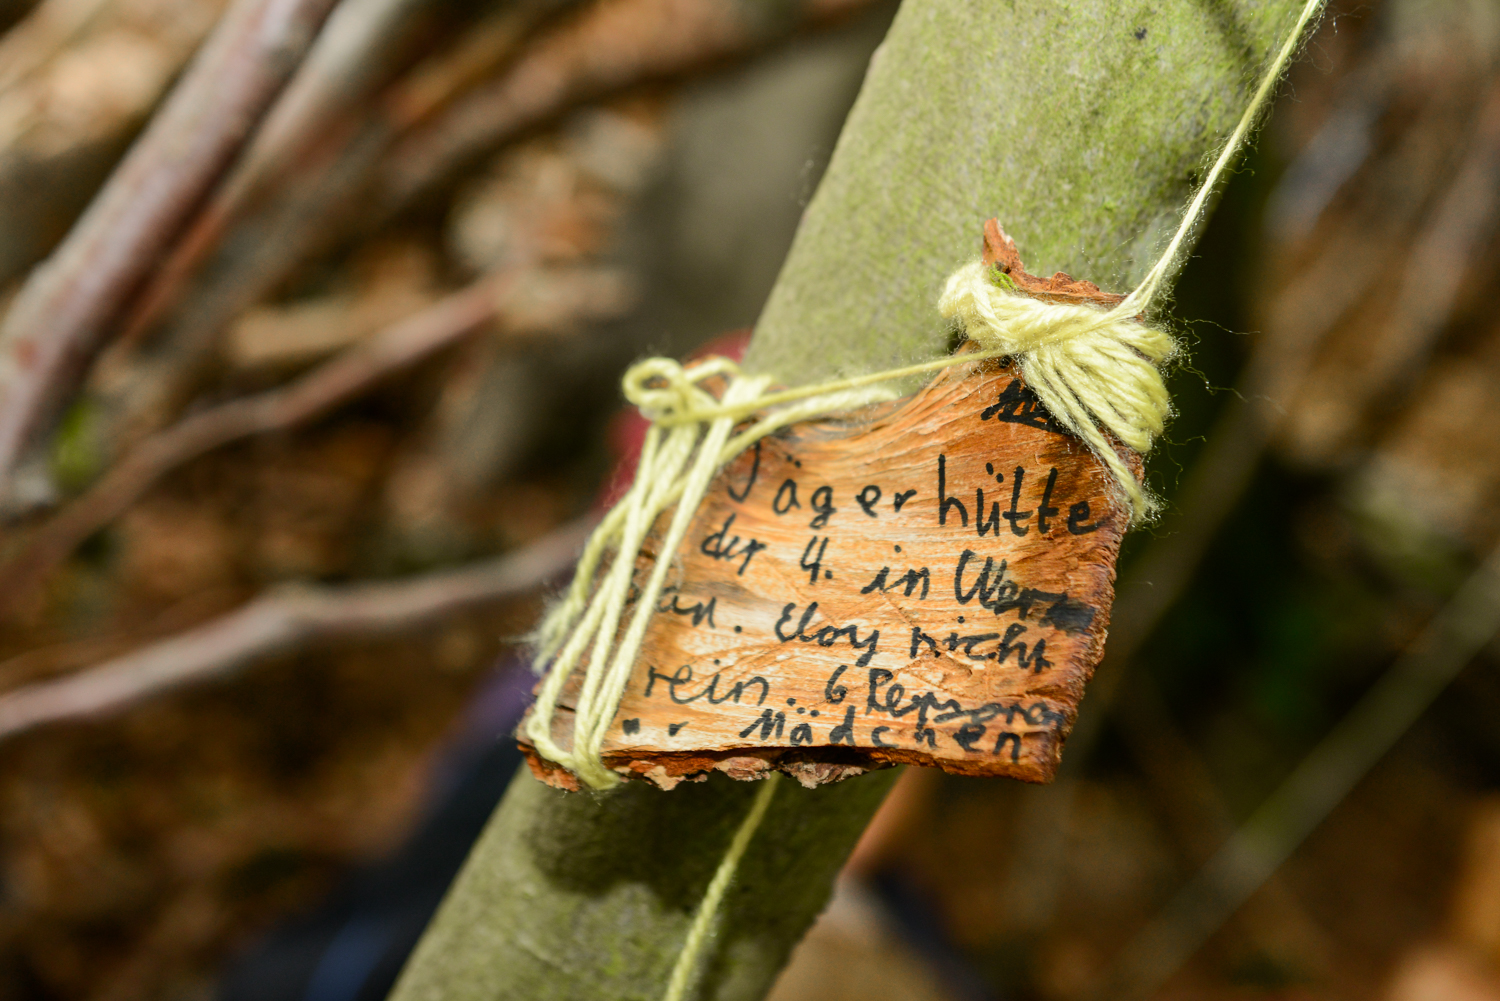 Jägerhütte
der 4. in Wern
Eloy nicht
rein. 6
Mädchen